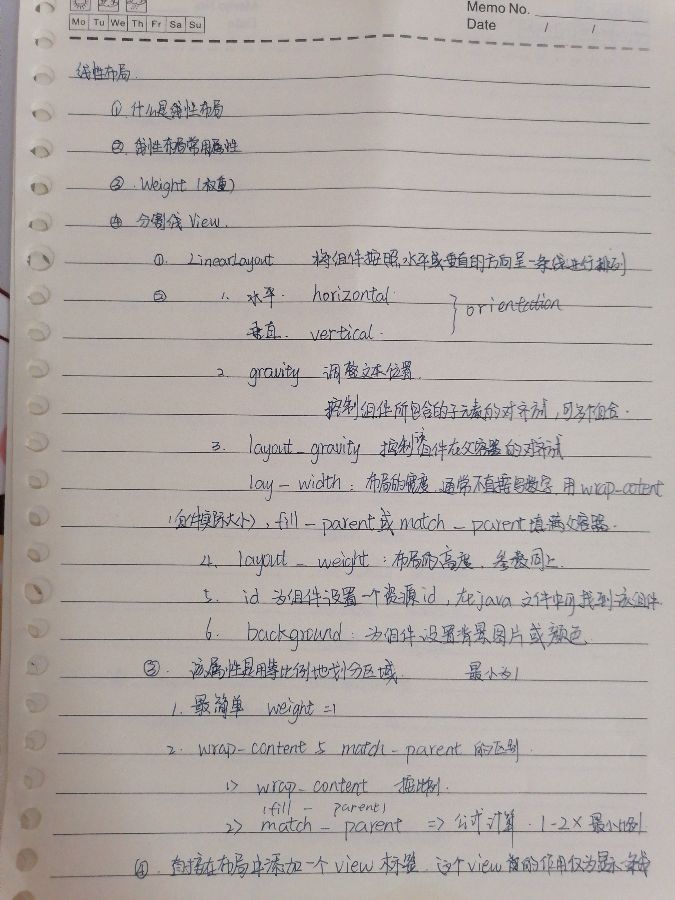 Memo No.
Mo Tu We Th Fr Sa Su
Date / /
线性布局.
① 什么是线性布局
② 线性布局常用属性
③ Weight (权重)
④ 分割线 View.
①. LinearLayout 将组件按照水平或垂直的方向呈一条线进行排列
② 1. 水平. horizontal
垂直. vertical. } orientation
2. gravity 调整文本位置.
控制组件所包含的子元素的对齐方式,可多个组合.
3. layout_gravity 控制该组件在父容器的对齐方式
lay_width: 布局的宽度,通常不直接写数字,用wrap_cotent
(组件实际大小), fill_parent或match_parent填满父容器.
4. layout_weight: 布局的高度, 参数同上.
5. id 为组件设置一个资源id, 在java 文件中可找到该组件.
6. background: 为组件设置背景图片或颜色
③. 该属性是用等比例地划分区域. 最小为1
1. 最简单 weight=1
2. wrap_content 与 match_parent 的区别.
1> wrap_content 按比例.
(fill_parent)
2> match_parent => 公式计算. 1-2× 最小比例
④. 直接在布局中添加一个view标签. 这个view的作用仅为显示一条线